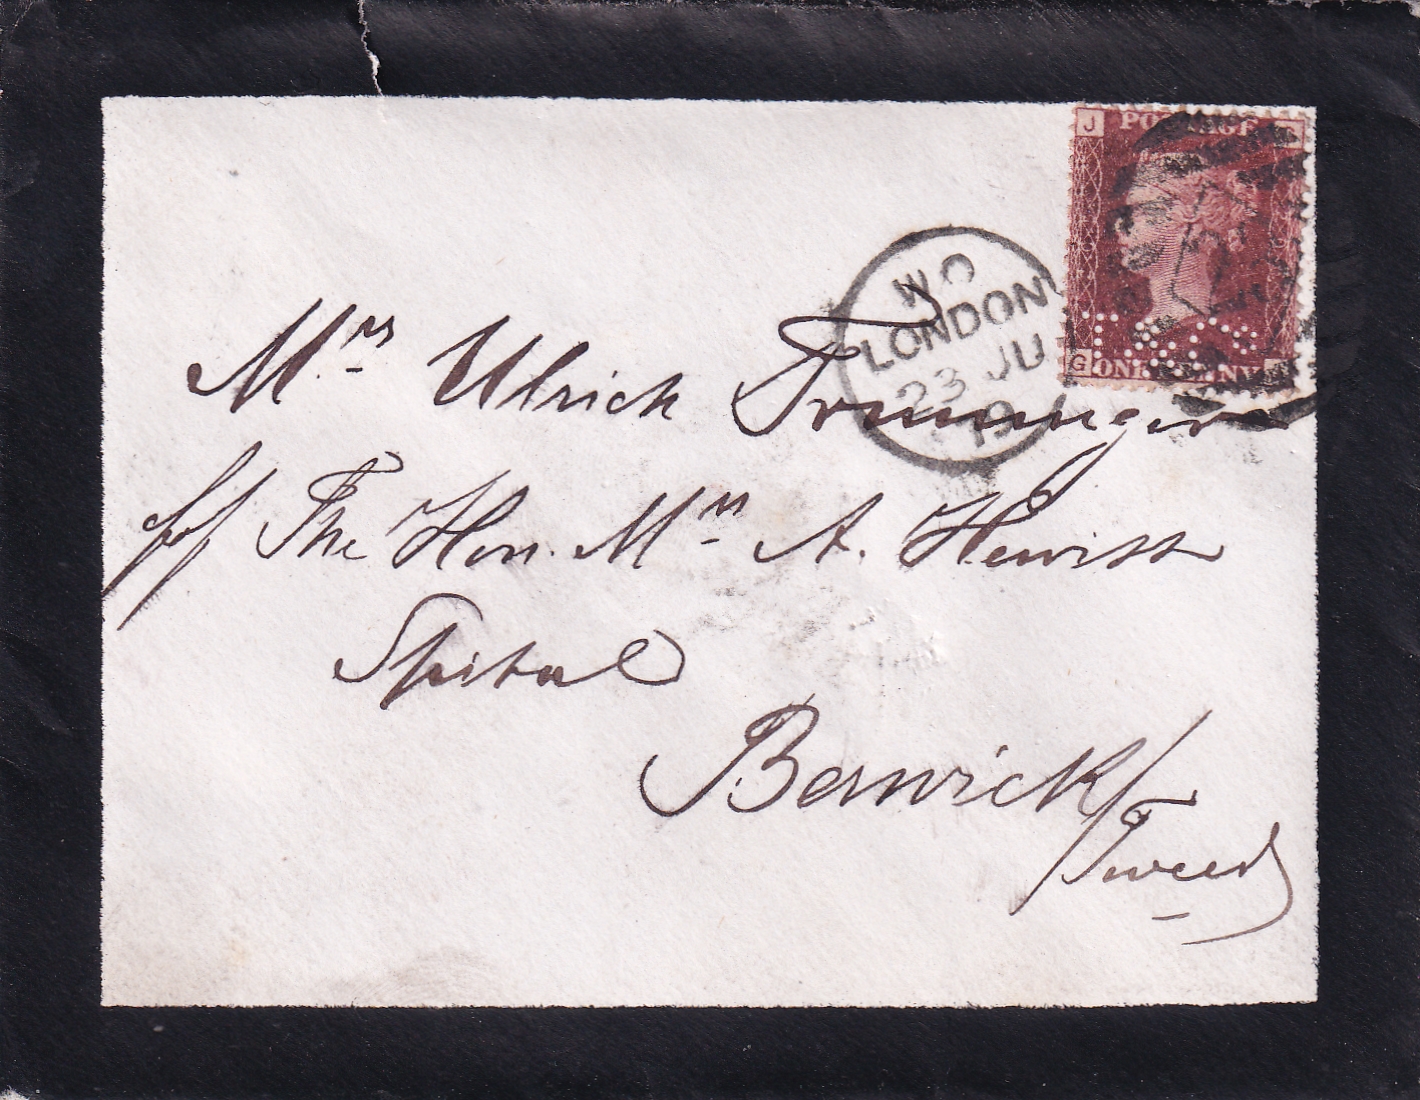 J POSTAGE
W.O
LONDON
23 JU
79
G ONE PENNY J
Mrs Ulrich
The Hon. Mrs A. Hewitt
Spital
Berwick/
Tweed